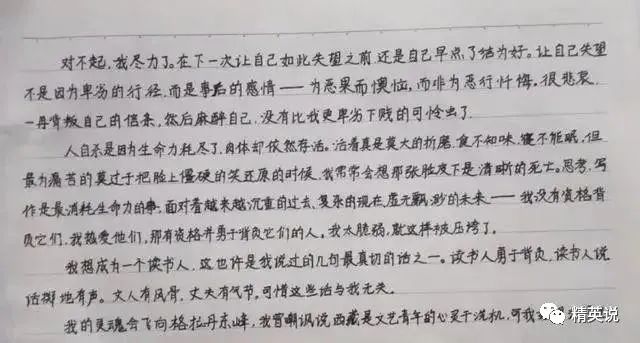 对不起，我尽力了。在下一次让自己如此失望之前，还是自己早点了结为好。让自己失望
不是因为卑劣的行径，而是事后的感情——为恶果而懊恼，而非为恶行忏悔。很悲哀，
一再背叛自己的信条，然后麻醉自己，没有比我更卑劣下贱的可怜虫了。
人自杀是因为生命力耗尽了，肉体却依然存活。活着真是莫大的折磨，食不知味，寝不能眠，但
最为痛苦的莫过于把脸上僵硬的笑还原的时候，我常常会想那张脸皮下是清晰的死亡。思考、写
作是最消耗生命力的事，面对着越来越沉重的过去、复杂的现在、虚无飘渺的未来——我没有资格背
负它们，我热爱他们，那有资格并勇于背负它们的人。我太脆弱，就这样被压垮了。
我想成为一个读书人，这也许是我说过的几句最真切的话之一。读书人勇于背负，读书人说
话掷地有声。文人有风骨，丈夫有气节，可惜这些话与我无关。
我的灵魂会飞向格拉丹东峰，我曾嘲讽说西藏是文艺青年的心灵干洗机，可我
精英说